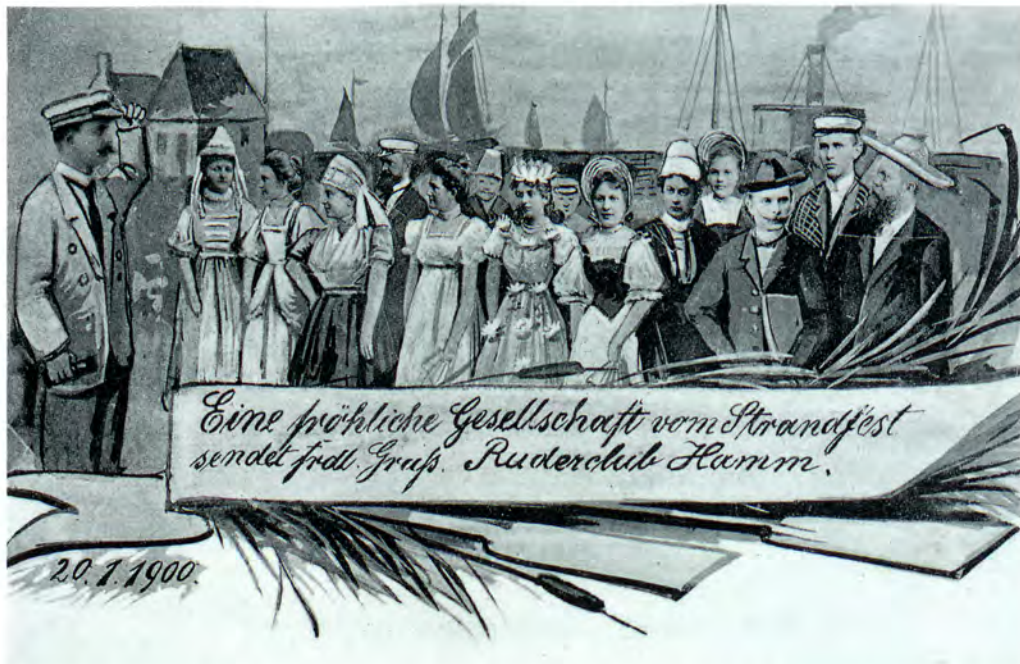 Eine fröhliche Gesellschaft vom Strandfest
sendet frdl. Gruß. Ruderclub Hamm.
20.1.1900.